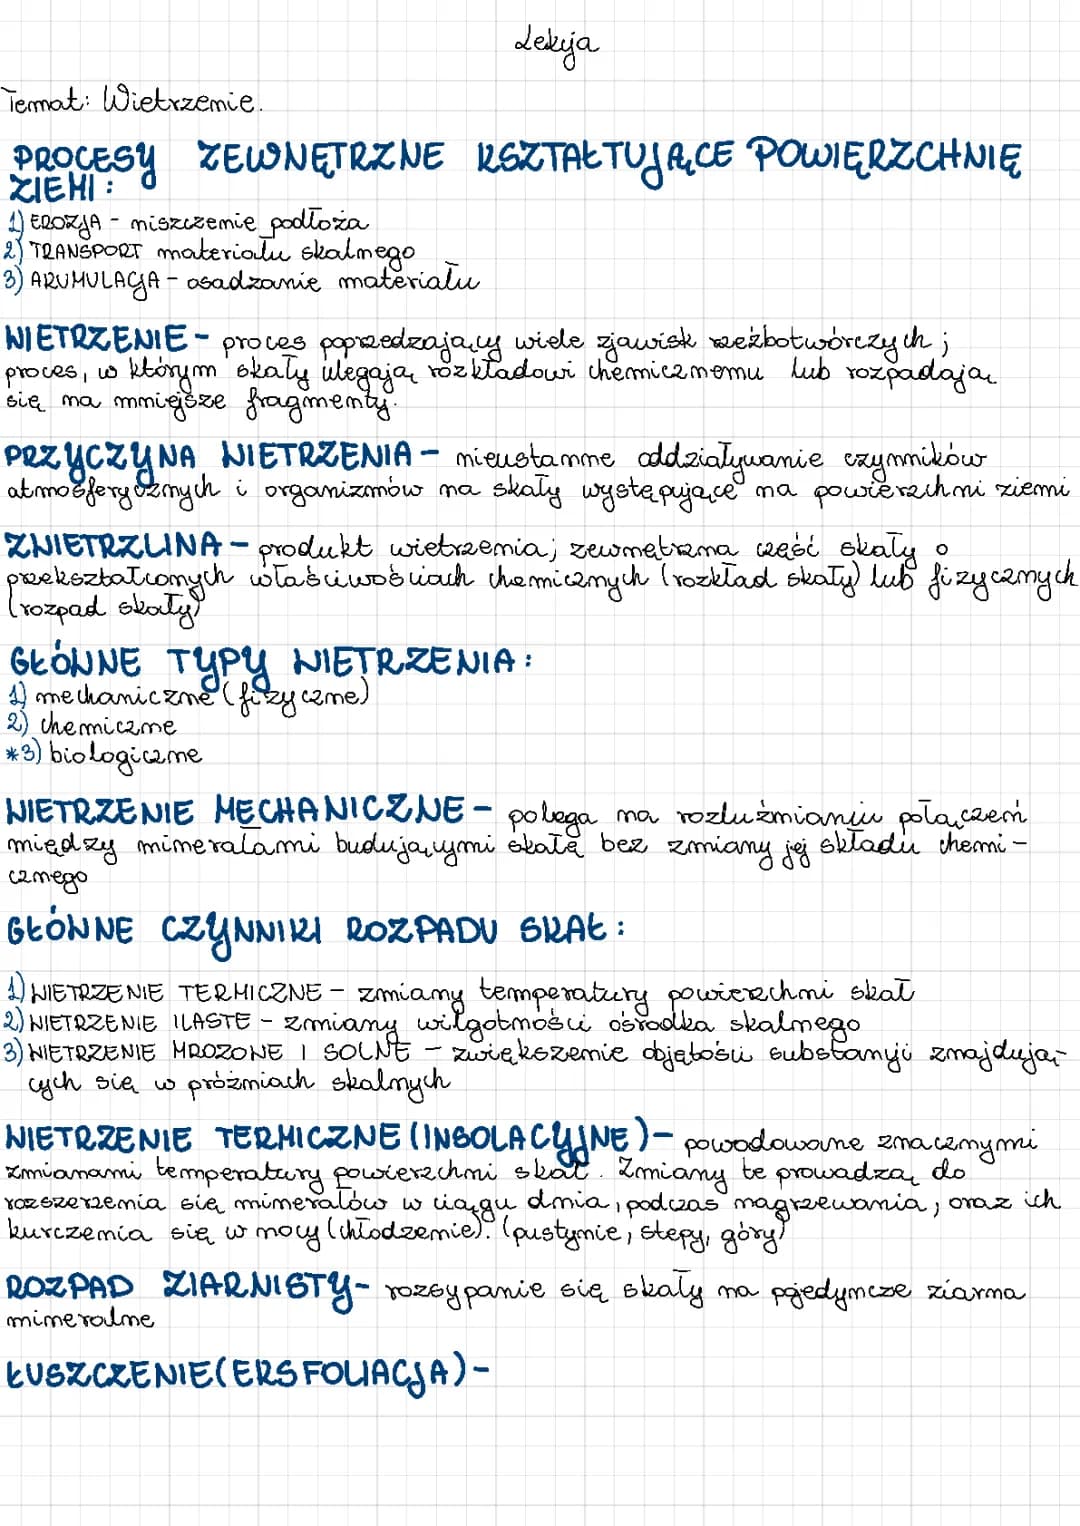 Lekcja
Temat: Wietrzenie.
PROCESY ZEWNĘTRZNE KSZTAŁTUJĄCE POWIĘRZCHNIĘ
ZIEMI:
1) EROZJA - niszczenie podłoża
2) TRANSPORT materiału skalnego
3) AKUMULACJA - osadzanie materiału
WIETRZENIE - proces poprzedzający wiele zjawisk rzeźbotwórczych;
proces, w którym skały ulegają rozkładowi chemicznemu lub rozpadają
się na mniejsze fragmenty.
PRZYCZYNA WIETRZENIA - nieustanne oddziaływanie czynników
atmosferycznych i organizmów na skały występujące na powierzchni ziemi
ZWIETRZLINA - produkt wietrzenia; zewnętrzna część skały o
przekształconych właściwościach chemicznych (rozkład skały) lub fizycznych
(rozpad skały)
GŁÓWNE TYPY WIETRZENIA:
1) mechaniczne (fizyczne)
2) chemiczne
*3) biologiczne
WIETRZENIE MECHANICZNE - polega na rozluźnianiu połączeń
między minerałami budującymi skałę bez zmiany jej składu chemi-
cznego
GŁÓWNE CZYNNIKI ROZPADU SKAŁ:
1) WIETRZENIE TERMICZNE - zmiany temperatury powierzchni skał
2) WIETRZENIE ILASTE - zmiany wilgotności ośrodka skalnego
3) WIETRZENIE MROZOWE I SOLNE - zwiększenie objętości substancji znajdują-
cych się w próżniach skalnych
WIETRZENIE TERMICZNE (INSOLACYJNE) - powodowane znacznymi
zmianami temperatury powierzchni skał. Zmiany te prowadzą do
rozszerzenia się minerałów w ciągu dnia, podczas nagrzewania, oraz ich
kurczenia się w nocy (chłodzenie). (pustynie, stepy, góry)
ROZPAD ZIARNISTY - rozsypanie się skały na pojedyncze ziarna
mineralne
ŁUSZCZENIE (EKSFOLIACJA) -